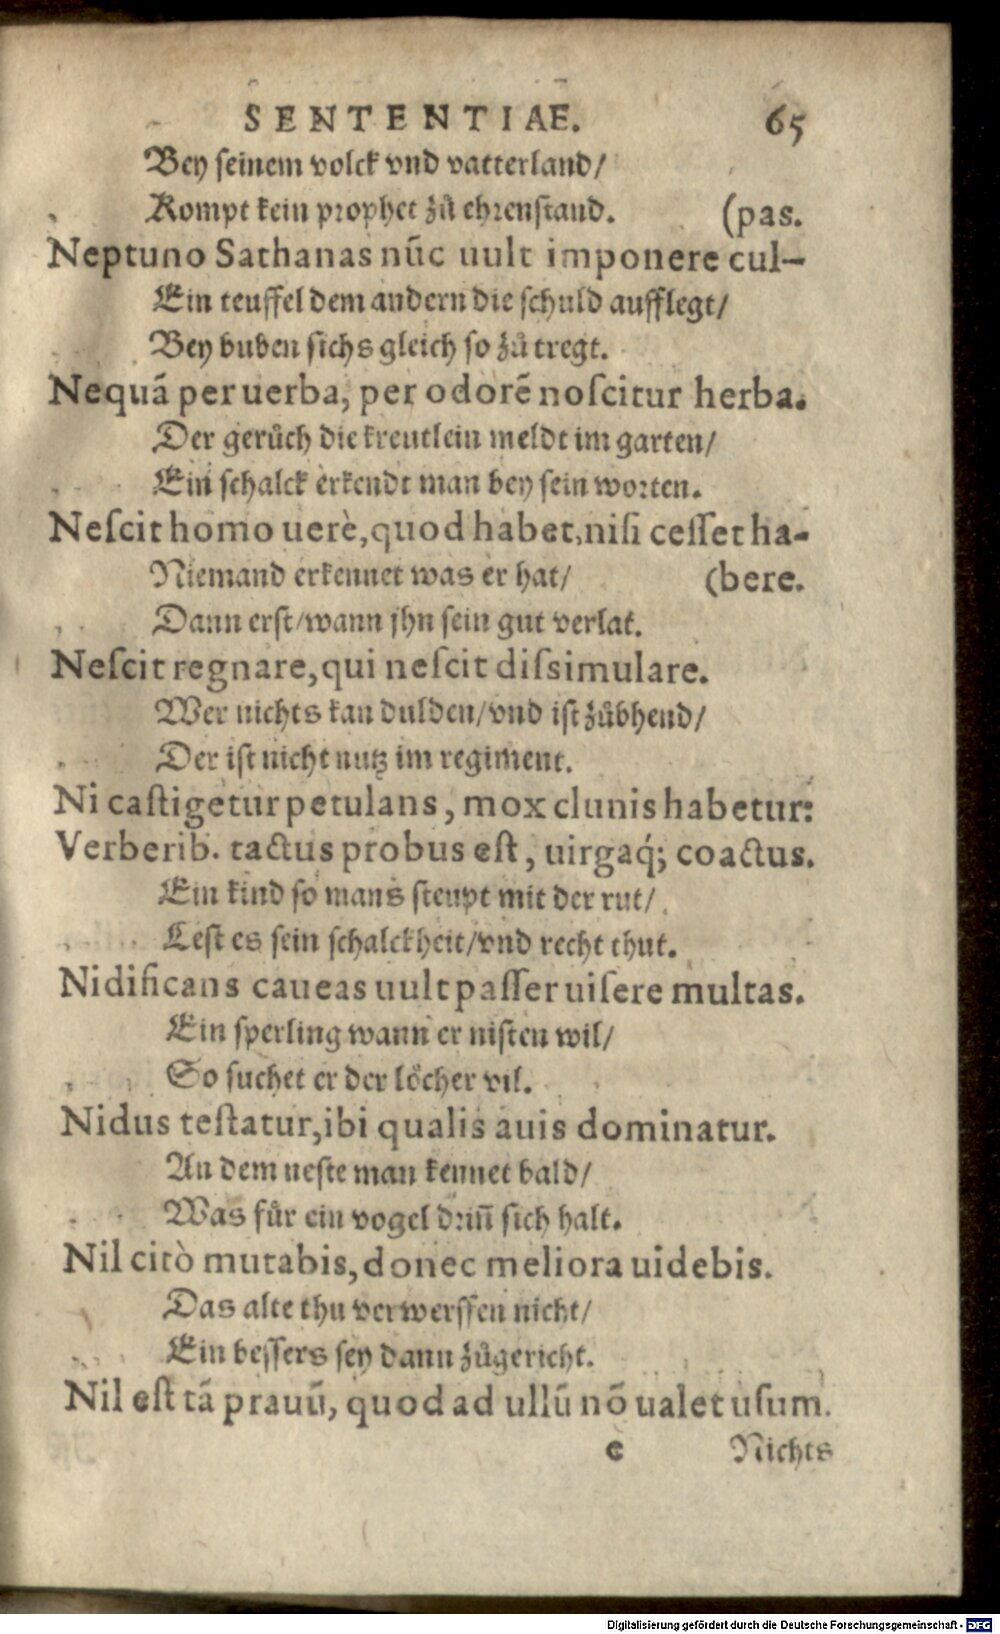 SENTENTIAE. 65
Bey seinem volck vnd vatterland/
Kompt kein prophet zů ehrenstand. (pas.
Neptuno Sathanas nũc uult imponere cul-
Ein teuffel dem andern die schuld aufflegt/
Bey buben sichs gleich so zů tregt.
Nequã per uerba, per odorẽ noſcitur herba.
Der gerůch die kreutlein meldt im garten/
Ein schalck erkendt man bey sein worten.
Neſcit homo uerè, quod habet, niſi ceſſet ha-
Niemand erkennet was er hat/ (bere.
Dann erst/wann jhn sein gut verlat.
Neſcit regnare, qui neſcit diſsimulare.
Wer nichts kan dulden/vnd ist zůbhend/
Der ist nicht nutz im regiment.
Ni caſtigetur petulans, mox clunis habetur:
Verberib. tactus probus eſt, uirgaq́; coactus.
Ein kind so mans steupt mit der rut/
Lest es sein schalckheit/vnd recht thut.
Nidificans caueas uult paſſer uiſere multas.
Ein sperling wann er nisten wil/
So suchet er der löcher vil.
Nidus teſtatur, ibi qualis auis dominatur.
An dem neste man kennet bald/
Was für ein vogel driñ sich halt.
Nil citò mutabis, donec meliora uidebis.
Das alte thu verwerffen nicht/
Ein bessers sey dann zůgericht.
Nil eſt tã prauũ, quod ad ullũ nõ ualet uſum.
e Nichts
Digitalisierung gefördert durch die Deutsche Forschungsgemeinschaft - DFG